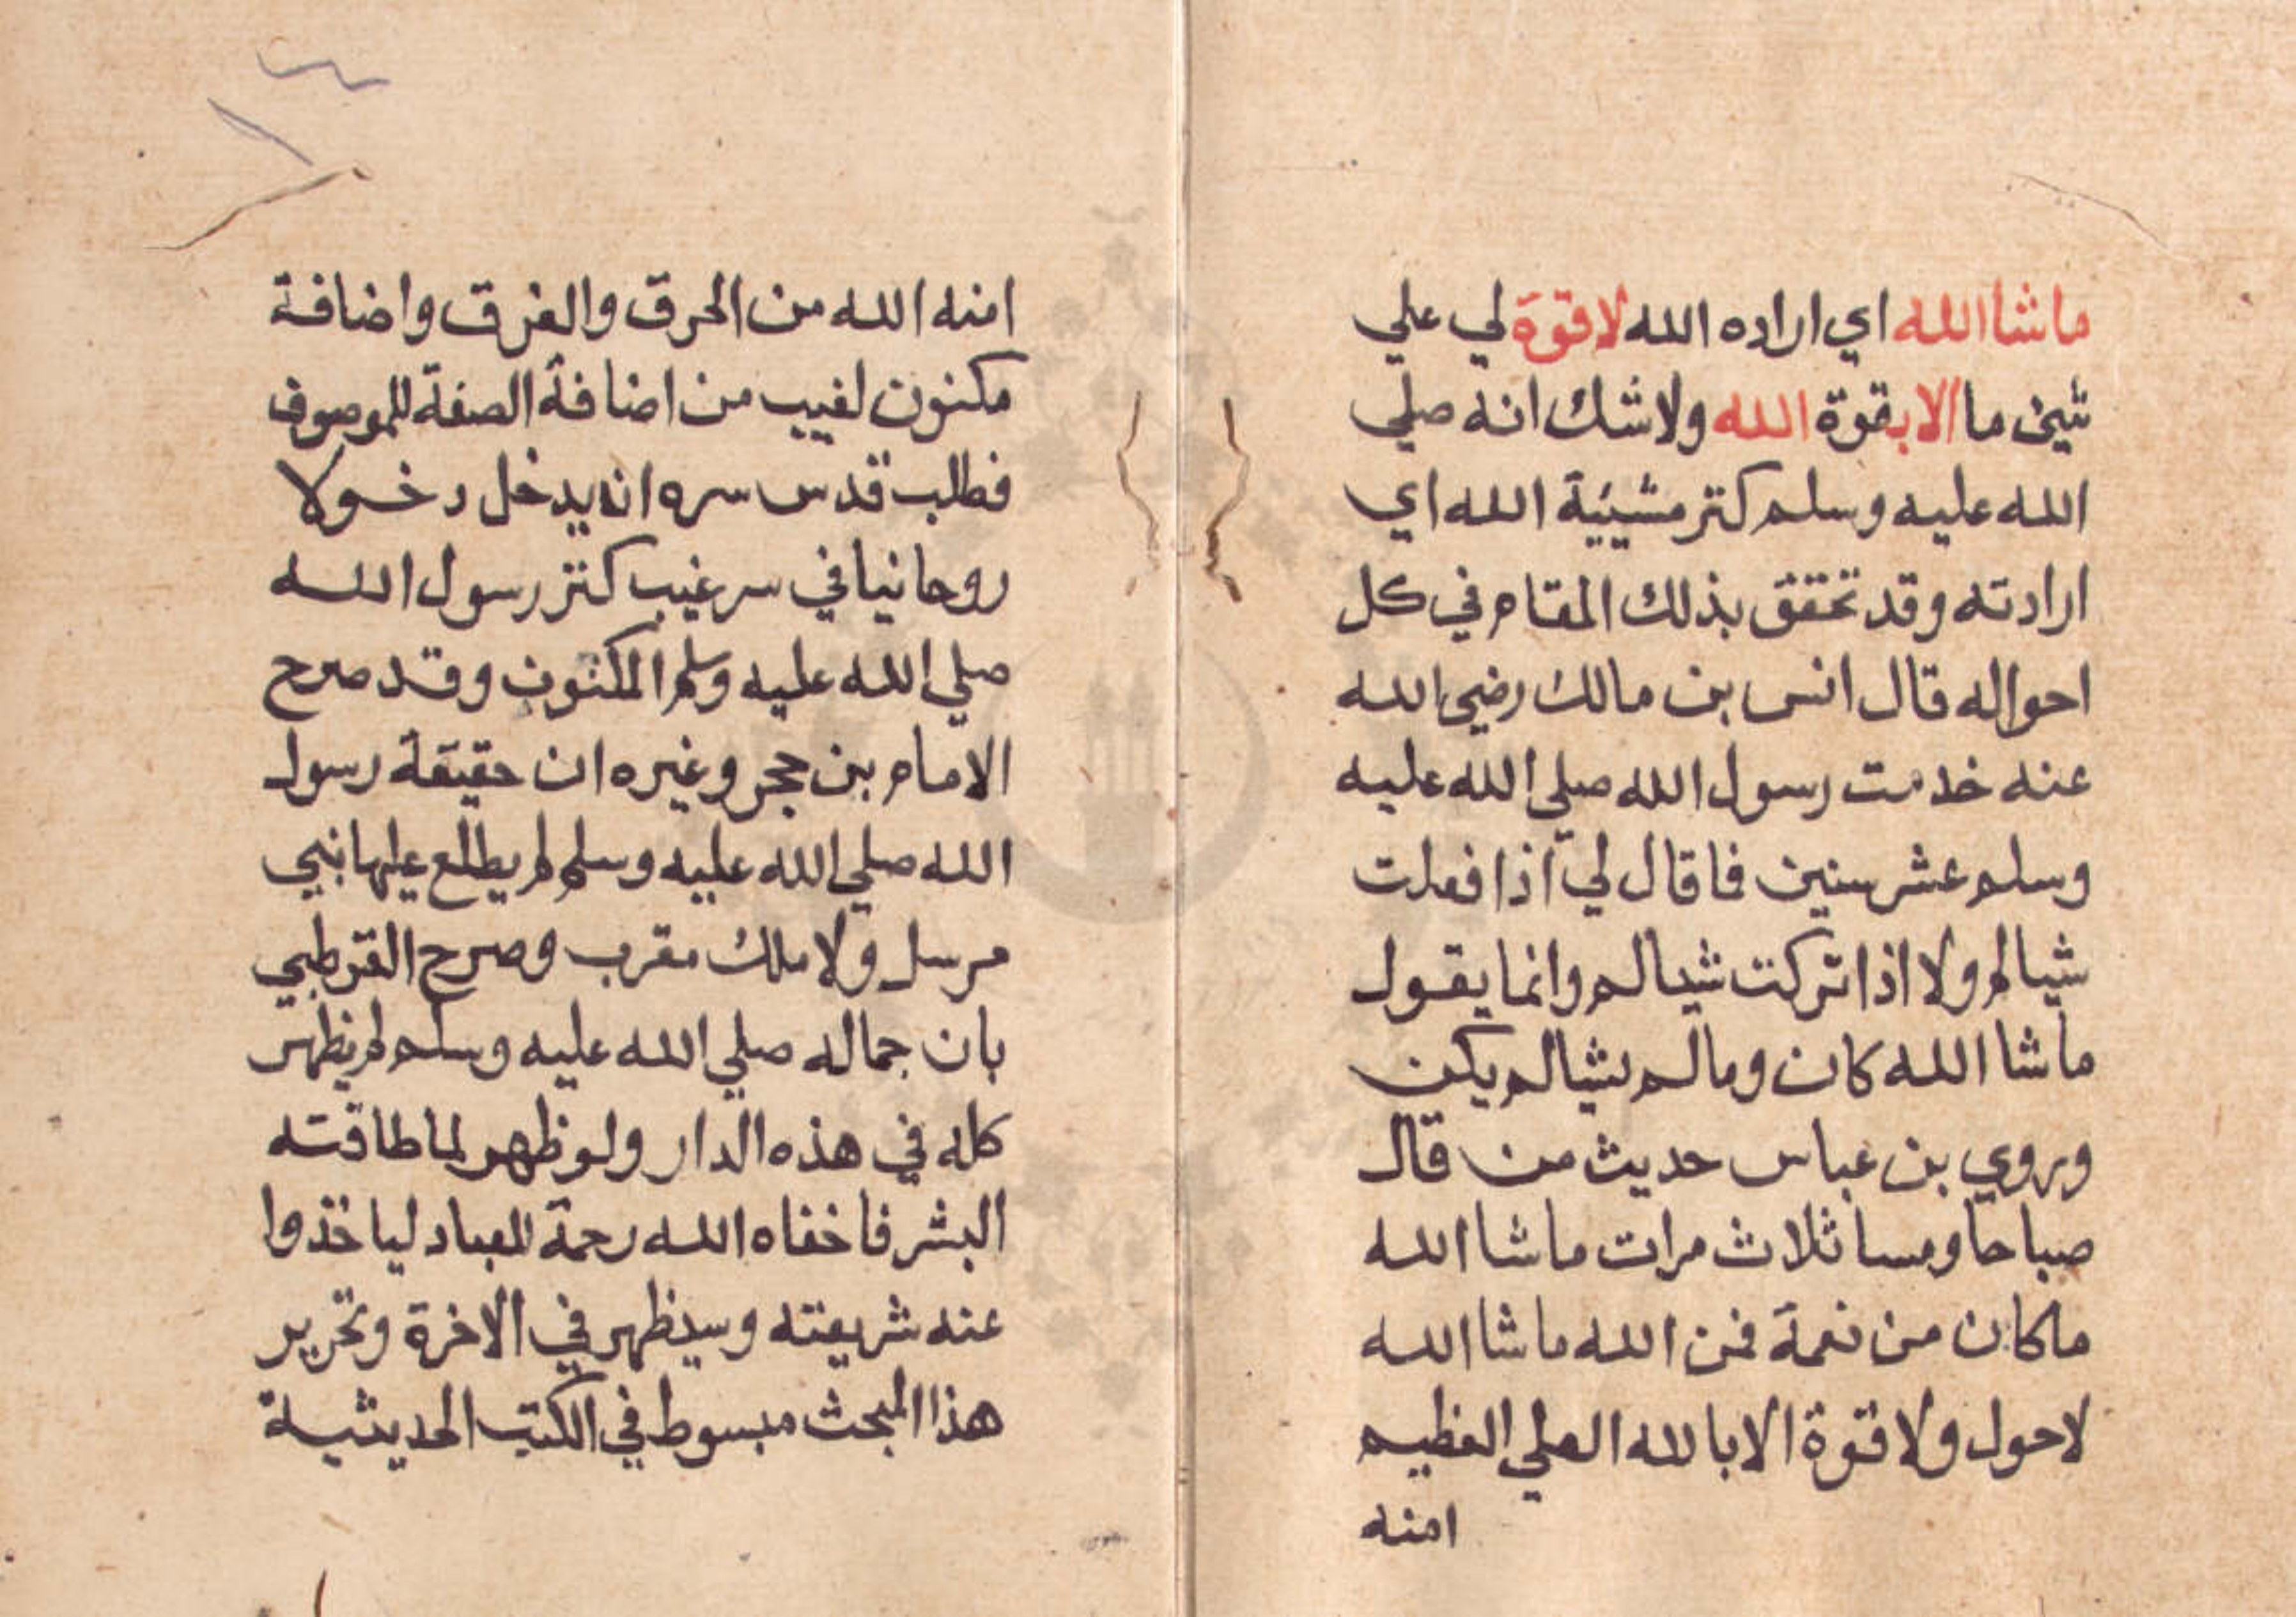 ماشا الله اي اراده الله لا قوة لي علي
شيئ ما الا بقوة الله ولا شك انه صلي
الله عليه وسلم كنز مشيية الله اي
ارادته وقد تحقق بذلك المقام في كل
احواله قال انس بن مالك رضي الله
عنه خدمت رسول الله صلي الله عليه
وسلم عشر سنين فا قال لي اذا فعلت
شيا لم ولا اذا تركت شيا لم وانما يقول
ما شا الله كان وما لم يشا لم يكن
وروي بن عباس حديث من قال
صباحا ومسا ثلاث مرات ماشا الله
ماكان من نعمة فمن الله ماشا الله
لاحول ولا قوة الا بالله العلي العظيم
امنه
امنه الله من الحرق والغرق واضافة
مكنون لغيب من اضافة الصفة للموصوف
فطلب قدس سره ان يدخل دخولا
روحانيا في سر غيب كنز رسول الله
صلي الله عليه وسلم المكنون وقد صرح
الامام بن حجر وغيره ان حقيقة رسول
الله صلي الله عليه وسلم لم يطلع عليها نبي
مرسل ولا ملك مقرب وصرح القرطبي
بان جماله صلي الله عليه وسلم لم يظهر
كله في هذه الدار ولو ظهر لما طاقته
البشر فاخفاه الله رحمة للعباد لياخذوا
عنه شريعته وسيظهر في الاخرة وتحرير
هذا المبحث مبسوط في الكتب الحديثية